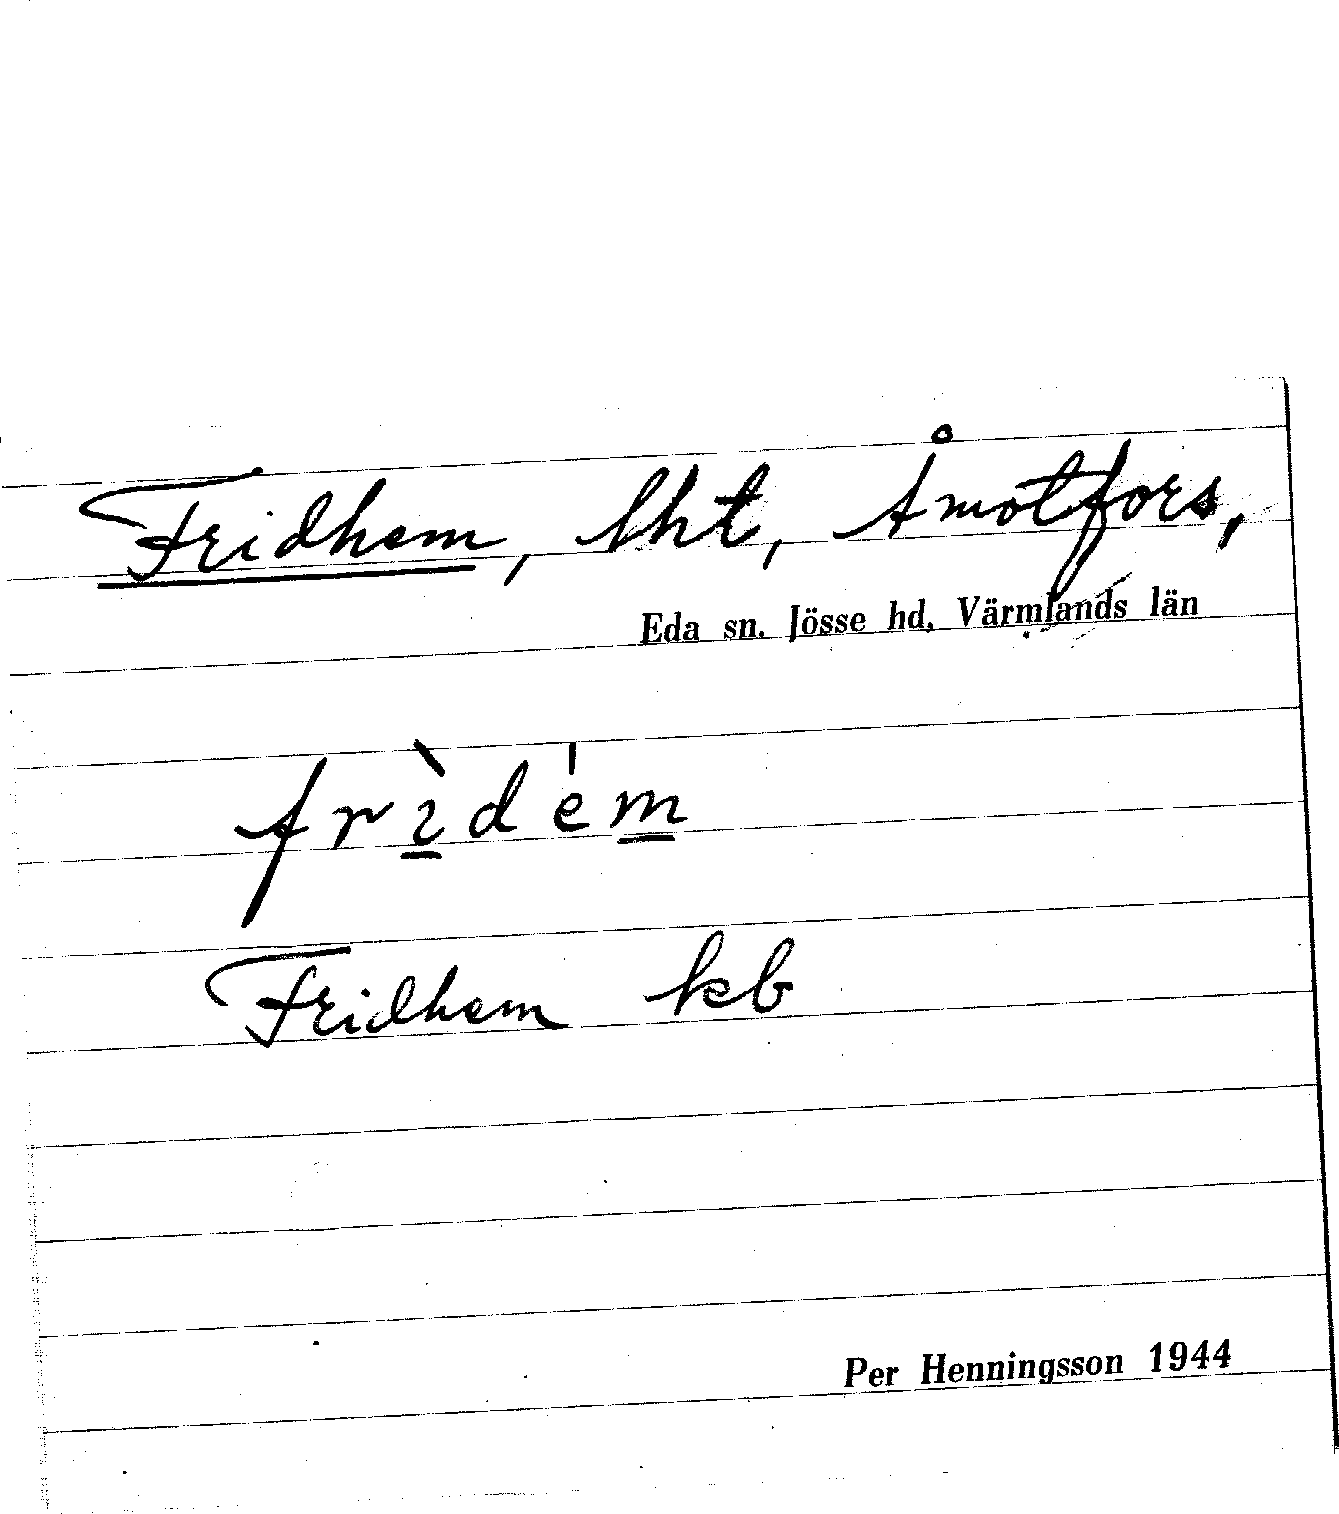 Fridhem, lht, Åmotfors,
Eda sn. Jösse hd, Värmlands län
frìdém
Fridhem kb
Per Henningsson 1944